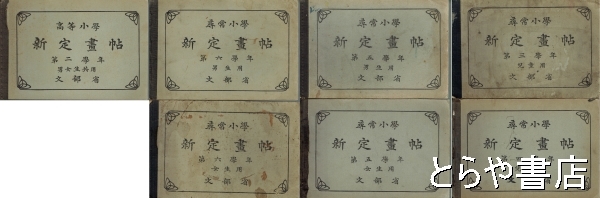 高等小學
新定畫帖
第二學年
男女生共用
文部省
尋常小學
新定畫帖
第六學年
男生用
文部省
尋常小學
新定畫帖
第五學年
男生用
文部省
尋常小學
新定畫帖
第三學年
兒童用
文部省
尋常小學
新定畫帖
第六學年
女生用
文部省
尋常小學
新定畫帖
第五學年
女生用
文部省
尋常小學
新定畫帖
とらや書店